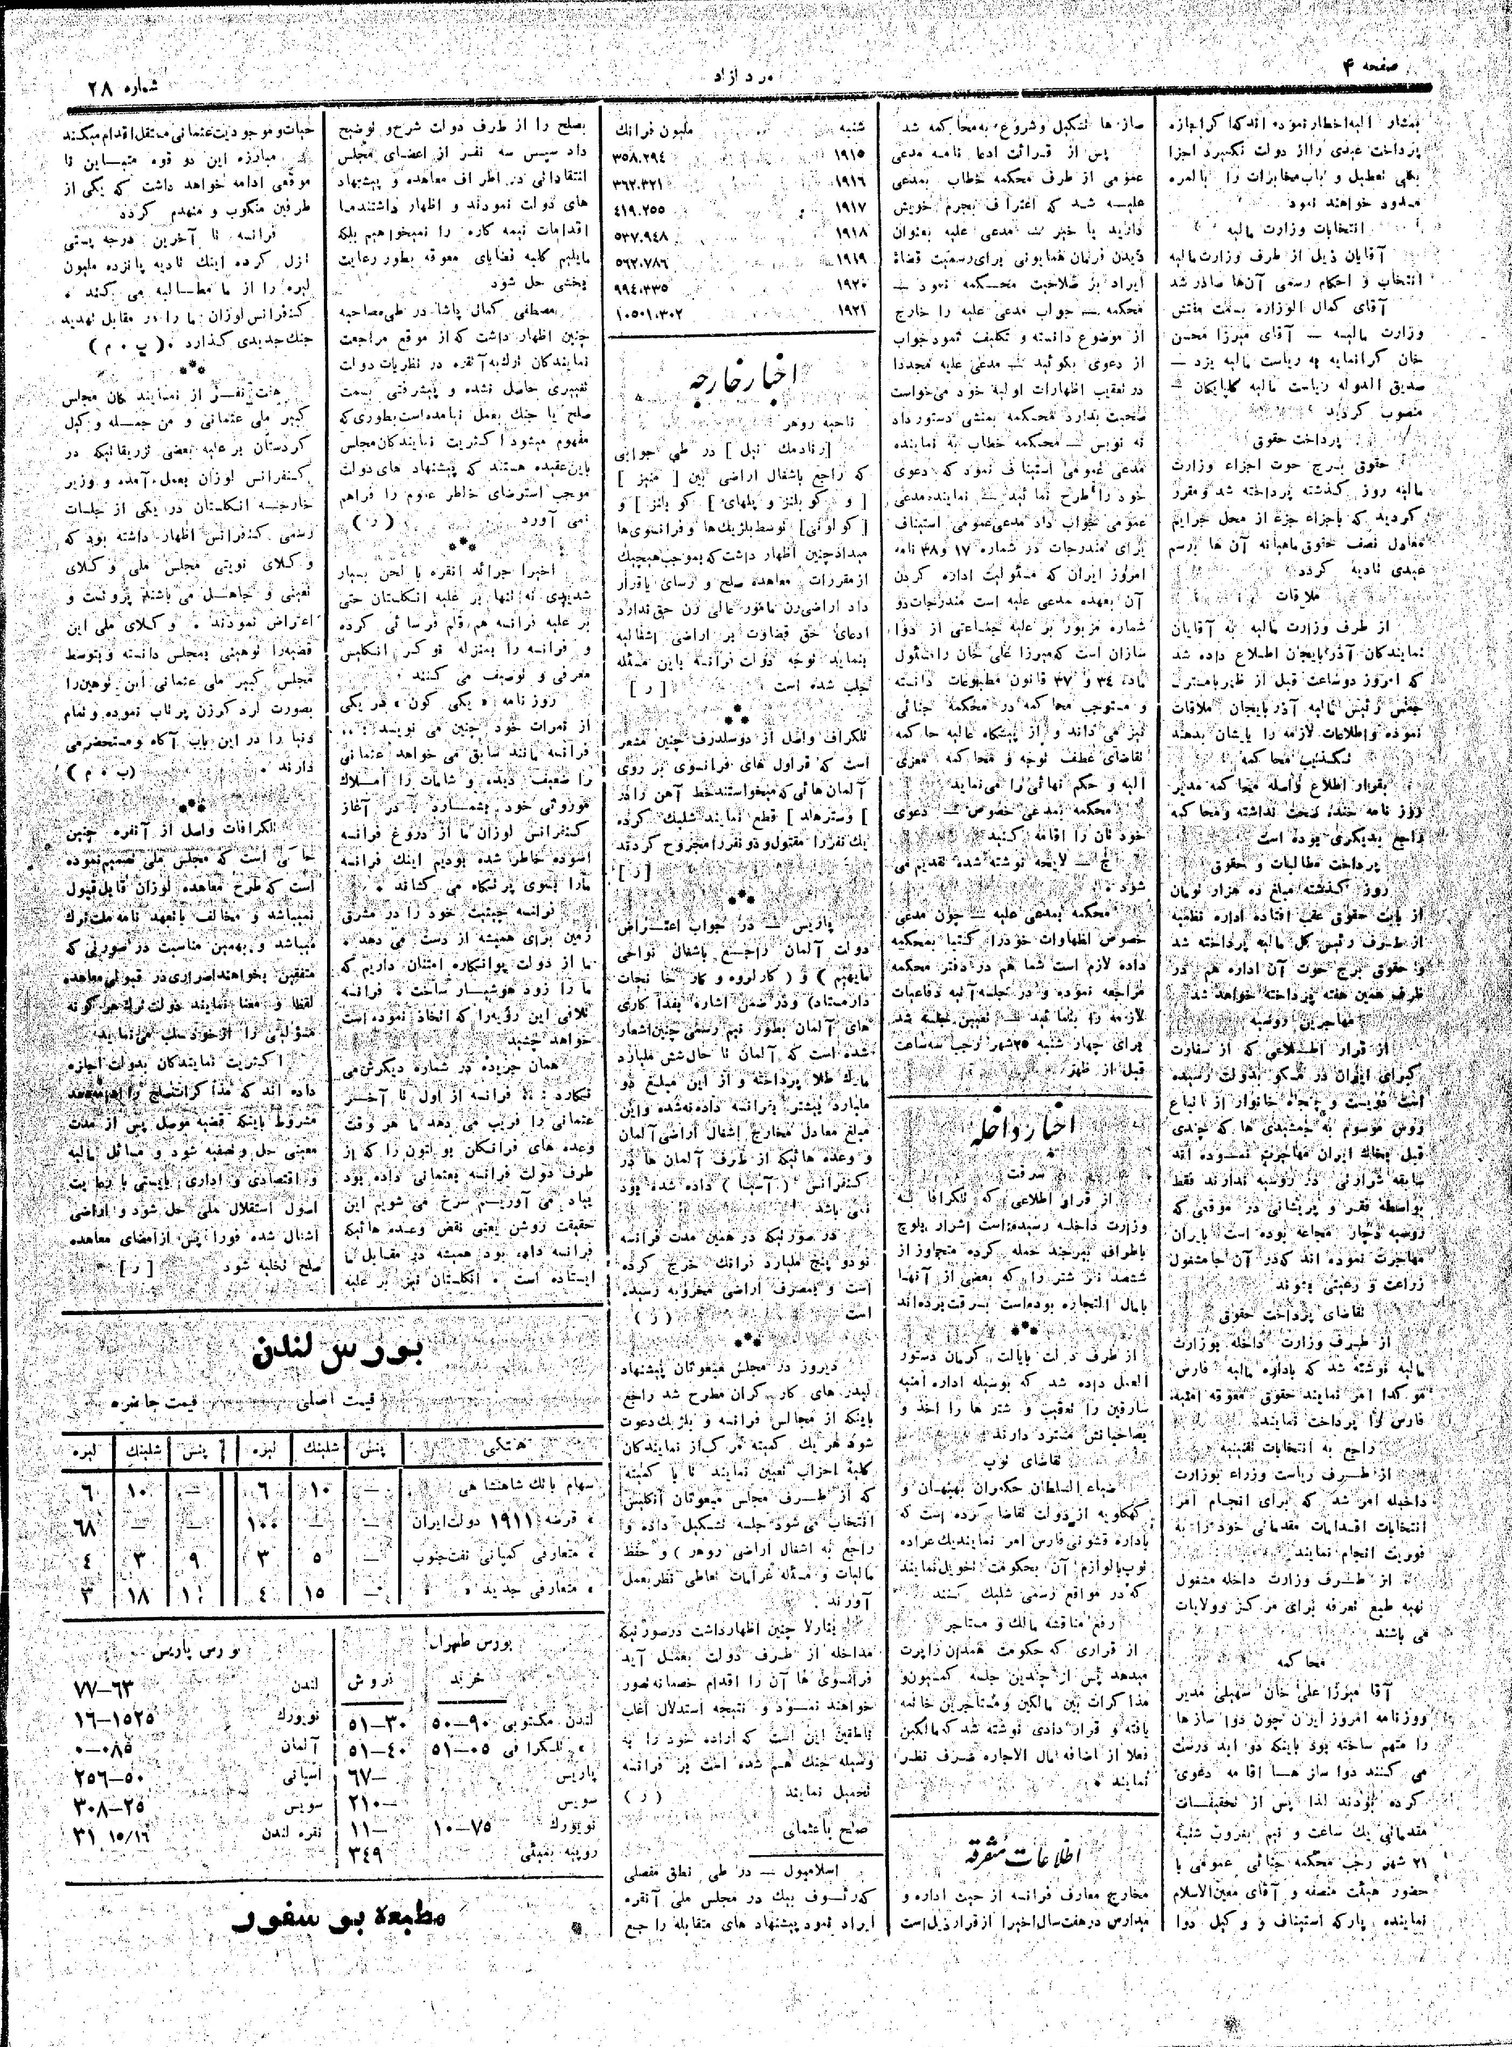 صفحه ۴
مرد آزاد
شماره ۲۸
پرداخت عیدی را از دولت نگیرد اجزا
مسدود خواهند نمود
انتخابات وزارت مالیه
آقایان ذیل از طرف وزارت مالیه
انتخاب و احکام رسمی آن‌ها صادر شد
آقای کمال الوزاره بسمت مفتش
وزارت مالیه — آقای میرزا محسن
خان گرانمایه به ریاست مالیه یزد —
صدیق الدوله ریاست مالیه گلپایگان —
منصوب گردید
پرداخت حقوق
حقوق برج حوت اجزاء وزارت
مالیه روز گذشته پرداخته شد و مقرر
گردید که باجزاء جزء از محل جرایم
معادل نصف حقوق ماهیانه آن ها برسم
عیدی تادیه گردد
ملاقات
از طرف وزارت مالیه به آقایان
نمایندگان آذربایجان اطلاع داده شد
که امروز دو ساعت قبل از ظهر با مستر
رئیس مالیه آذربایجان ملاقات
نموده و اطلاعات لازمه را بایشان بدهند
تکذیب محاکمه
بقرار اطلاع واصله محاکمه مدیر
روز نامه خنده صحت نداشته و محاکمه
راجع بدیگری بوده است
پرداخت مطالبات و حقوق
روز گذشته مبلغ ده هزار تومان
از بابت حقوق عقب افتاده اداره نظمیه
از طرف رئیس کل مالیه پرداخته شد
و حقوق برج حوت آن اداره هم در
ظرف همین هفته پرداخته خواهد شد
مهاجرین روسیه
از قرار اطلاعی که از سفارت
کبرای ایران در مسکو بدولت رسیده
است دویست و پنجاه خانوار از اتباع
روس موسوم به جمشیدی ها که چندی
قبل بخاك ایران مهاجرت نموده اند
سابقه شرارتی در روسیه ندارند فقط
بواسطه فقر و پریشانی در موقعی که
روسیه دچار مجاعه بوده است بایران
مهاجرت نموده اند که در آن جا مشغول
زراعت و رعیتی بشوند
تقاضای پرداخت حقوق
از طرف وزارت داخله بوزارت
مالیه نوشته شد که باداره مالیه فارس
موکدا امر نمایند حقوق معوقه امنیه
فارس را پرداخت نمایند
راجع به انتخابات تقنینیه
از طرف ریاست وزراء بوزارت
داخله امر شد که برای انجام امر
انتخابات اقدامات مقدماتی خود را به
فوریت انجام نمایند
از طرف وزارت داخله مشغول
تهیه طبع تعرفه برای مرکز و ولایات
می باشند
محاکمه
آقا میرزا علی خان سهیلی مدیر
روزنامه امروز ایران چون دوا سازها
را متهم ساخته بود باینکه دو ابد درست
می کنند دوا ساز ها اقامه دعوی
کرده بودند لذا پس از تحقیقات
مقدماتی یك ساعت و نیم بغروب شنبه
۲۱ شهر رجب محکمه جنائی عمومی با
حضور هیئت منصفه و آقای معین‌الاسلام
نماینده پارکه استیناف و وکیل دوا
ساز ها تشکیل و شروع به محاکمه شد
پس از قرائت ادعا نامه مدعی
عمومی از طرف محکمه خطاب بمدعی
علیه شد که اعتراف بجرم خویش
دارید یا خیر — مدعی علیه بعنوان
ندیدن فرمان همایونی برای رسمیت قضاة
ایراد بر صلاحیت محکمه نمود —
محکمه — جواب مدعی علیه را خارج
از موضوع دانسته و تکلیف نمود جواب
از دعوی بگوئید — مدعی علیه مجددا
در تعقیب اظهارات اولیه خود میخواست
صحبت بدارد محکمه بمنشی دستور داد
نه نویس — محکمه خطاب به نماینده
مدعی عمومی استیناف نمود که دعوی
خود را طرح نمائید — نماینده مدعی
عمومی جواب داد مدعی عمومی استیناف
برای مندرجات در شماره ۱۷ و ۳۸ نامه
امروز ایران که مسئولیت اداره کردن
آن بعهده مدعی علیه است مندرجات دو
شماره مزبور بر علیه جماعتی از دوا
سازان است که میرزا علی خان را مشمول
ماده ۳۴ و ۳۷ قانون مطبوعات دانسته
و مستوجب محاکمه در محکمه جنائی
نیز می داند و از پیشگاه عالیه حاکمه
تقاضای عطف توجه و محاکمه معزی
الیه و حکم نهائی را می‌نماید
محکمه بمدعی خصوصی — دعوی
خود تان را اقامه کنید
ج — لایحه نوشته شده تقدیم می
شود
محکمه بمدعی علیه — چون مدعی
خصوصی اظهارات خود را کتبا بمحکمه
داده لازم است شما هم در دفتر محکمه
مراجعه نموده و در جلسه آتیه دفاعیات
لازمه را بنمائید — تعیین جلسه شد
برای چهار شنبه ۲۵ شهر رجب سه ساعت
قبل از ظهر
اخبار داخله
سرقت
از قرار اطلاعی که تلگرافا به
وزارت داخله رسیده است اشرار بلوچ
باطراف بیرجند حمله کرده متجاوز از
ششصد نفر شتر را که بعضی از آنها
بامال التجاره بوده است بسرقت برده‌اند
***
از طرف دولت بایالت کرمان دستور
العمل داده شد که بوسیله اداره امنیه
سارقین را تعقیب و شتر ها را اخذ و
بصاحبانش مسترد دارند
تقاضای توپ
ضیاء السلطان حکمران بهبهان و
کهگلویه از دولت تقاضا کرده است که
باداره قشونی فارس امر نمایند یك عراده
توپ بالوازم آن بحکومت تحویل نمایند
که در مواقع رسمی شلیك کنند
رفع مناقشه مالك و مستاجر
از قراری که حکومت همدان راپرت
میدهد پس از چندین جلسه کمسیون و
مذاکرات بین مالکین و مستاجرین خاتمه
یافته و قرار دادی نوشته شد که مالکین
فعلا از اضافه مال الاجاره صرف نظر
نمایند •
اطلاعات متفرقه
مخارج معارف فرانسه از حیث اداره و
مدارس در هفت سال اخیر از قرار ذیل است
ملیون فرانك
۱۹۱۵ ۳۵۸،۲۹۴
۱۹۱۶ ۳۶۲،۳۲۱
۱۹۱۷ ۴۱۹،۲۵۵
۱۹۱۸ ۵۳۷،۹۴۸
۱۹۱۹ ۵۶۲،۷۸۶
۱۹۲۰ ۹۹۴،۳۳۵
۱۹۲۱ ۱۰۵۰۱،۳۰۲
اخبار خارجه
ناحیه روهر
در طی جوابی
که راجع باشغال اراضی بین
توسط بلژیك‌ها و فرانسوی‌ها
میداد چنین اظهار داشت که بموجب هیچیك
از مقررات معاهده صلح و رسای یا قرار
داد اراضی رن مامور عالی رن حق ندارد
ادعای حق قضاوت بر اراضی اشغالیه
بنماید توجه دولت فرانسه باین مسئله
جلب شده است [ر]
***
تلگراف واصل از دوسلدرف چنین مشعر
است که قراول های فرانسوی بر روی
آلمان هائی که میخواستند خط آهن را در
[وسترهلد] قطع نمایند شلیك کرده
یك نفر را مقتول و دو نفر را مجروح کردند
[ر]
***
پاریس — در جواب اعتراض
دولت آلمان راجع باشغال نواحی
مانهیم) و (کارلروه و کار خانجات
دارمستاد) و در ضمن اشاره بفداکاری
های آلمان بطور نیم رسمی چنین اشعار
شده است که آلمان تا حال شش ملیارد
مارك طلا پرداخته و از این مبلغ دو
ملیارد بیشتر بفرانسه داده نشده و این
مبلغ معادل مخارج اشغال اراضی آلمان
و وعده هائیکه از طرف آلمان ها در
کنفرانس (اسپا) داده شده بود
نمی باشد
در صورتیکه در همین مدت فرانسه
نود و پنج ملیارد فرانك خرج کرده
است و بمصرف اراضی مخروبه رسیده
است (ر)
***
دیروز در مجلس مبعوثان پیشنهاد
لیدر های کارگران مطرح شد راجع
باینکه از مجالس فرانسه و بلژیك دعوت
شود هر یك کمیته مرکب از نمایندگان
کلیه احزاب تعیین نمایند تا با کمیته
که از طرف مجلس مبعوثان انگلیس
انتخاب می شود جلسه تشکیل داده و
راجع به اشغال اراضی روهر) و حفظ
مالیات و مسئله غرامات تعاطی نظر بعمل
آورند .
بنارلا چنین اظهار داشت در صورتیکه
مداخله از طرف دولت بعمل آید
فرانسوی ها آن را اقدام خصمانه تصور
خواهند نمود و نتیجه استدلال اغلب
ناطقین این است که اراده خود را به
وسیله جنك هم شده است بر فرانسه
تحمیل نمایند (ر)
صلح با عثمانی
اسلامبول — در طی نطق مفصلی
که رئوف بیك در مجلس ملی آنقره
ایراد نمود پیشنهاد های متقابله راجع
بصلح را از طرف دولت شرح و توضیح
داد سپس سه نفر از اعضای مجلس
انتقاداتی در اطراف معاهده و پیشنهاد
های دولت نمودند و اظهار داشتند ما
اقدامات نیمه کاره را نمیخواهیم بلکه
مایلیم کلیه قضایای معوقه بطور رضایت
بخشی حل شود
مصطفی کمال پاشا در طی مصاحبه
چنین اظهار داشت که از موقع مراجعت
نمایندگان ترك به آنقره در نظریات دولت
تغییری حاصل نشده و پیشرفتی بسمت
صلح یا جنك بعمل نیامده است بطوری که
مفهوم میشود اکثریت نمایندگان مجلس
باین عقیده هستند که پیشنهاد های دولت
موجب استرضای خاطر عموم را فراهم
نمی آورد (ر)
***
اخیرا جرائد انقره با لحن بسیار
شدیدی نه تنها بر علیه انگلستان حتی
بر علیه فرانسه هم قلم فرسائی کرده
و فرانسه را بمنزله نوکر انگلیس
معرفی و توصیف می کنند .
روزنامه « یکی کون » در یکی
از نمرات خود چنین می نویسد :
فرانسه مانند سابق می خواهد عثمانی
را ضعیف دیده و شامات را املاك
موروثی خود بشمارد — در آغاز
کنفرانس لوزان ما از دروغ فرانسه
آسوده خاطر شده بودیم اینك فرانسه
مارا بسوی پرتگاه می کشاند •
فرانسه حیثیت خود را در مشرق
زمین برای همیشه از دست می دهد •
ما از دولت پوانکاره امتنان داریم که
ما را زود هوشیار ساخت • فرانسه
تلافی این رویه را که اتخاذ نموده است
خواهد چشید
همان جریده در شماره دیگرش می
نگارد : فرانسه از اول تا آخر
عثمانی را فریب می دهد ما هر وقت
وعده های فرانکلن بویون را که از
طرف دولت فرانسه بعثمانی داده بود
بیاد می آوریم سرخ می شویم این
حقیقت روشن یعنی نقض وعده هائیکه
فرانسه داده بود همیشه در مقابل ما
ایستاده است • انگلستان نیز بر علیه
حیات و موجودیت عثمانی مستقل اقدام میکند
مبارزه این دو قوه متباین تا
موقعی ادامه خواهد داشت که یکی از
طرفین منکوب و منهدم گردد
فرانسه تا آخرین درجه پستی
تنزل کرده اینك تادیه پانزده ملیون
لیره را از ما مطالبه می کند •
کنفرانس لوزان ما را در مقابل تهدید
جنك جدیدی گذارد • (پ • م)
***
هفت نفر از نمایند گان مجلس
کبیر ملی عثمانی و من جمله وکیل
کردستان بر علیه بعضی تزریقاتیکه در
کنفرانس لوزان بعمل آمده و وزیر
خارجه انگلستان در یکی از جلسات
رسمی کنفرانس اظهار داشته بود که
وکلای نوینی مجلس ملی وکلای
تعیینی و جاهل می باشند پروتست و
اعتراض نمودند . وکلای ملی این
قضیه را توهینی بمجلس دانسته و بتوسط
مجلس کبیر ملی عثمانی این توهین را
بصورت لرد کرزن پرتاب نموده و تمام
دنیا را در این باب آگاه و مستحضر می
دارند . (پ • م)
***
تلگرافات واصل از آنقره چنین
حاکی است که مجلس ملی تصمیم نموده
است که طرح معاهده لوزان قابل قبول
نمیباشد و مخالف با تعهد نامه ملت ترك
میباشد و بهمین مناسبت در صورتی که
متفقین بخواهند اصراری در قبولی معاهده
لفظا و معنا نمایند دولت ترك هر گونه
مسئولیتی را از خود سلب می‌نماید
اکثریت نمایندگان بدولت اجازه
داده اند که مذاکرات صلح را ادامه دهد
مشروط باینکه قضیه موصل پس از مدت
معینی حل و تصفیه شود و مسائل مالیه
و اقتصادی و اداری بایستی با رعایت
اصول استقلال ملی حل شود و اراضی
اشغال شده فورا پس از امضای معاهده
صلح تخلیه شود [ر]
بورس لندن
قیمت اصلی قیمت حاضره
هستکی پنس شلینك لیره پنس شلینك لیره
سهام بانك شاهنشاهی — ۱۰ ۶ — ۱۰ ۶
« قرضه ۱۹۱۱ دولت ایران — — ۱۰۰ — — ۶۸
« متعارفی کمپانی نفت جنوب — ۵ ۳ ۹ ۳ ۴
« متعارفی جدید « « — ۱۵ ۴ ۱۸ ۳
بورس طهران
خرید فروش
لندن مکتوبی ۹۰—۵۰ ۳۰—۵۱
« تلگرافی ۰۵—۵۱ ۴۰—۵۱
پاریس —۶۷
سویس —۲۱۰
نویورك ۷۵—۱۰ —۱۱
روپیه بمبئی ۳۴۹
بورس پاریس
لندن ۶۳—۷۷
نویورك ۱۵۲۵—۱۶
آلمان ۰۸۵—۰
اسپانی ۵۰—۲۵۶
سویس ۲۵—۳۰۸
نقره لندن ۱۵/۱۶ ۳۱
مطبعه بوسفور